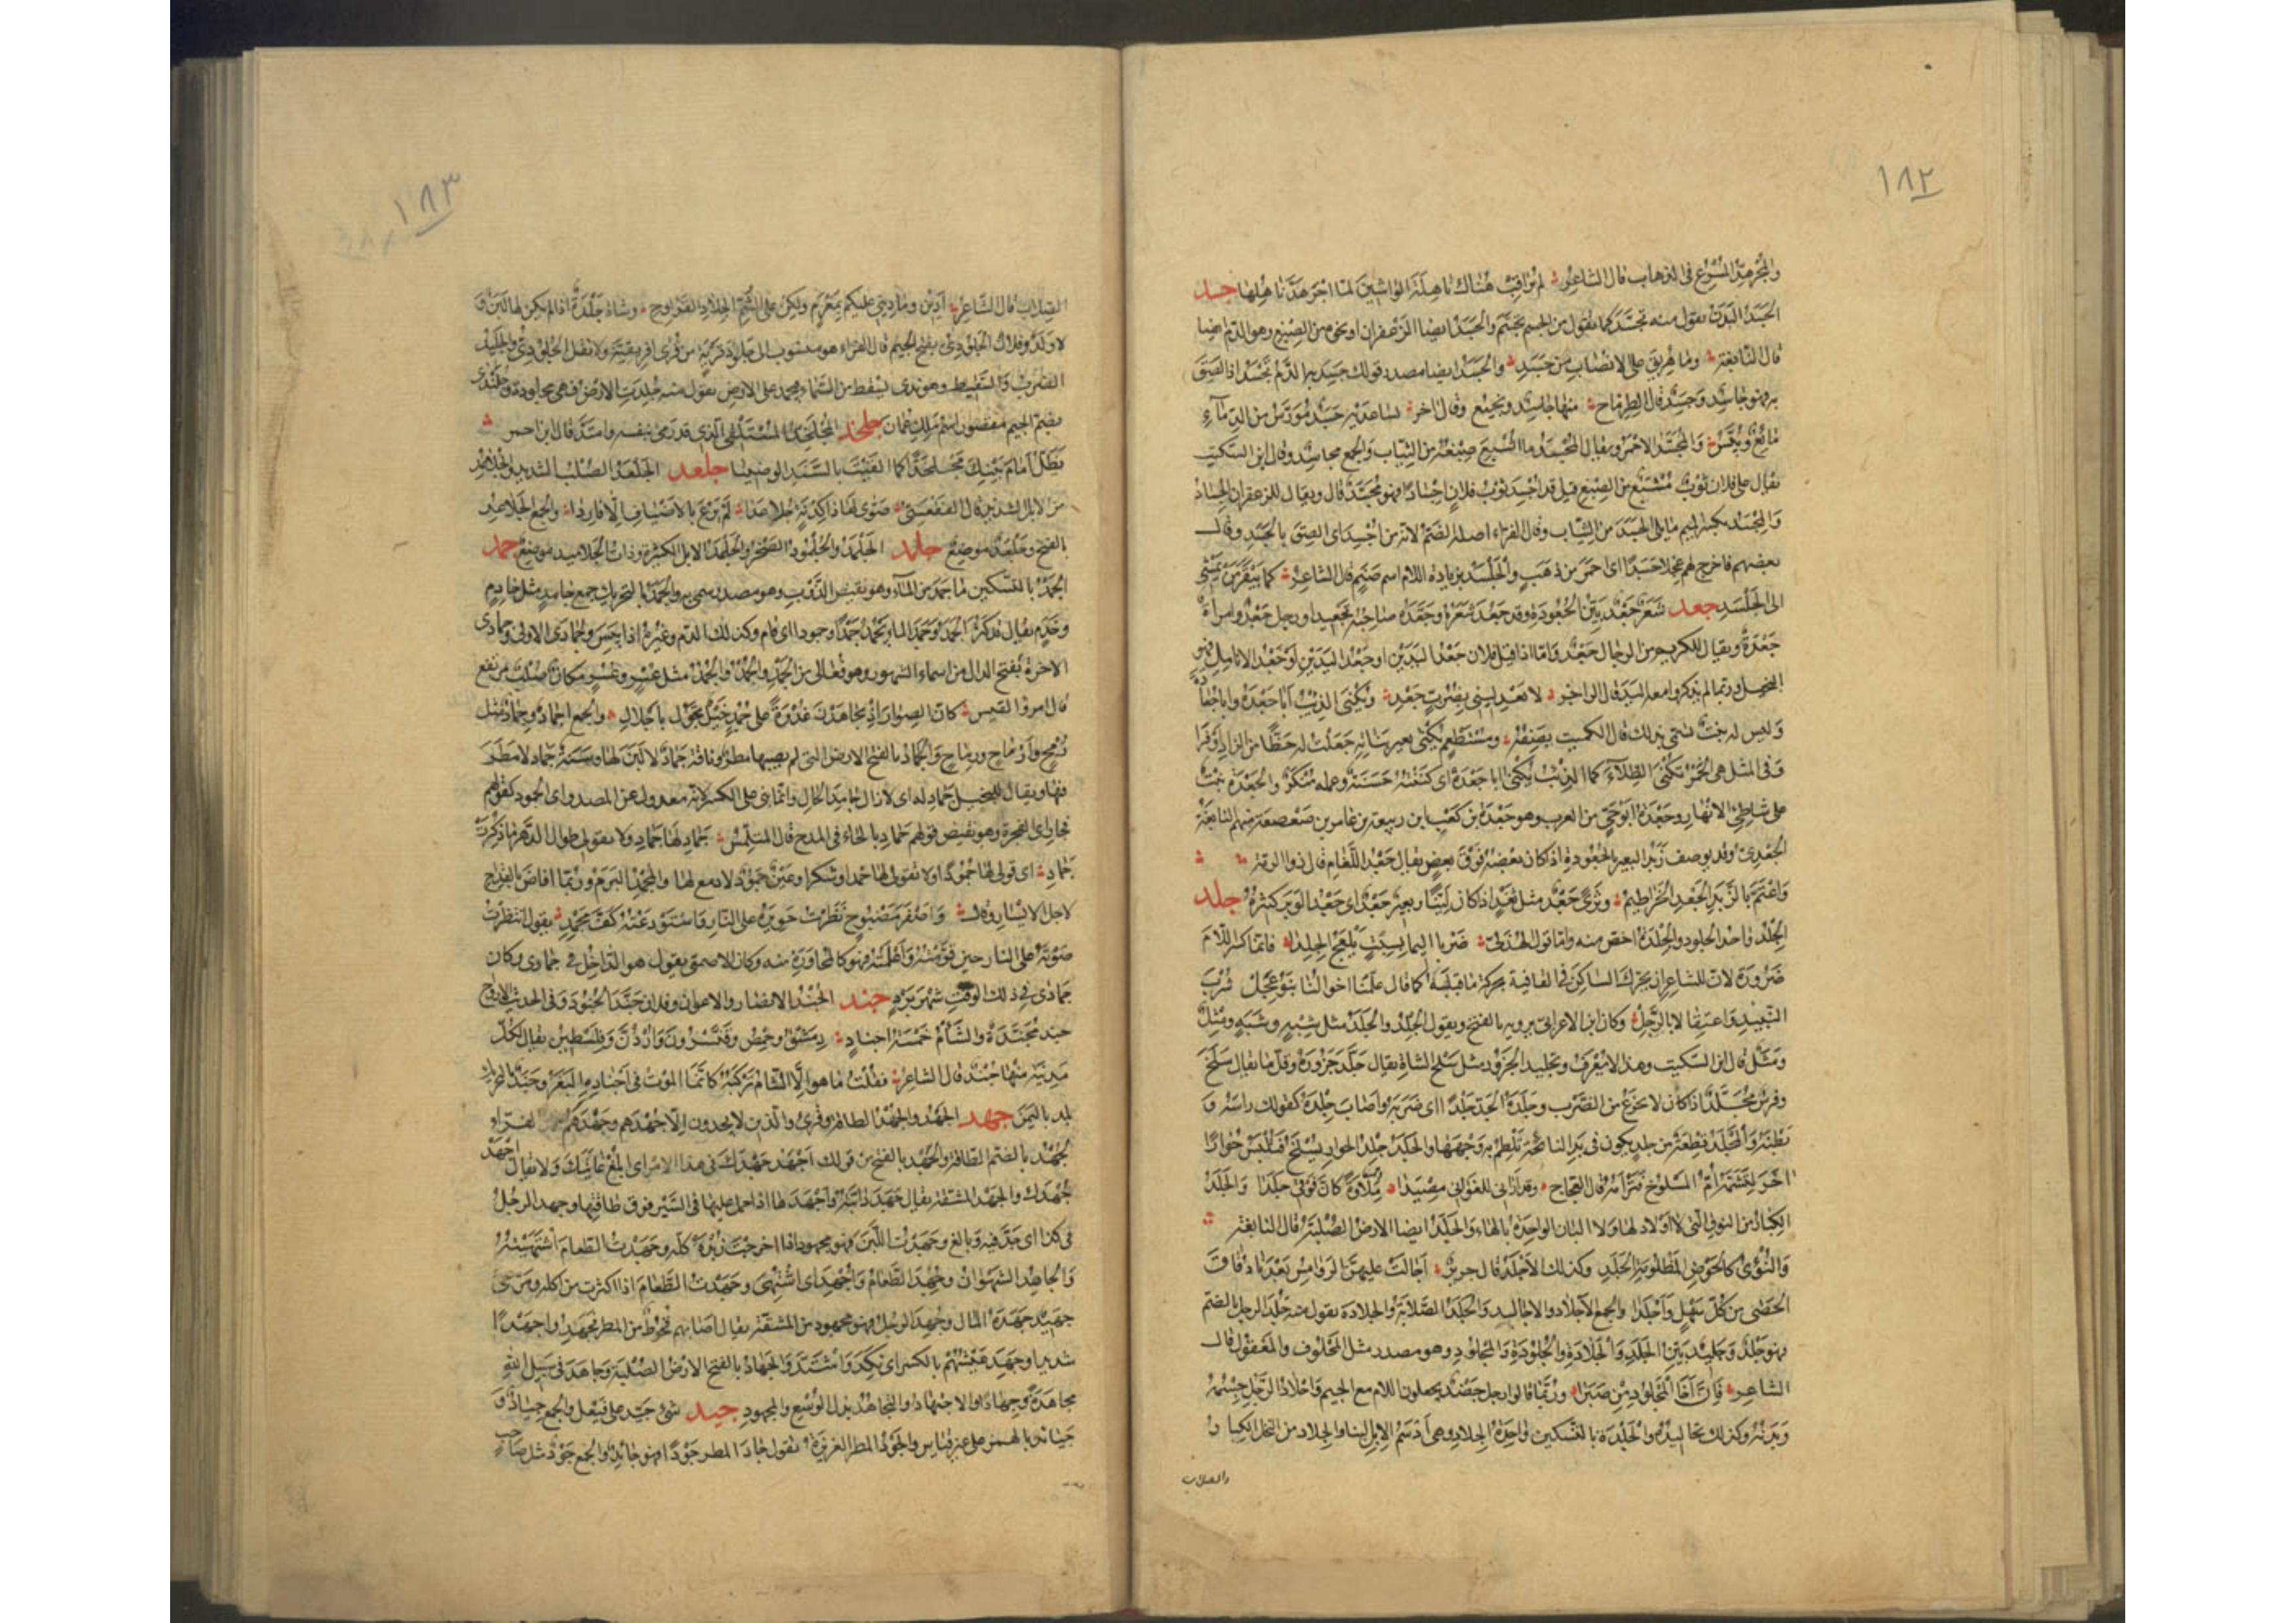 ١٨٢
والمجرهد المسرع فى الذهاب قال الشاعر لم تراقب هناك ناهلة الواشين لما اجرهد ناهلها جسد
الجسد البدن تقول منه تجسد كما تقول من الجسم تجسم والجسد ايضا الزعفران او نحوه من الصبغ وهو الدم ايضا
قال النابغة وما هريق على الانصاب من جسد والجسد ايضا مصدر قولك جسد به الدم يجسد اذا لصق
به فهو جاسد وجسد قال الطرماح منها جاسد ونجيع وقال اخر بساعديه جسد مورس من الدماء
مائع ويبس والمجسد الاحمر ويقال المجسد ما اشبع صبغه من الثياب والجمع مجاسد وقال ابن السكيت
يقال على فلان ثوب مشبع من الصبغ فيل قد اجسد ثوب فلان اجسادا فهو مجسد قال ويقال للزعفران الجساد
والمجسد بكسر الميم ما يلى الجسد من الثياب وقال الفراء اصله الضم لانه من اجسد اى الصق بالجسد وقال
بعضهم فاخرج لهم عجلا جسدا اى احمر من ذهب والجلسد بزيادة اللام اسم صنم قال الشاعر كما بيقر من يمشى
الى الجلسد جعد شعر جعد بين الجعودة وقد جعد شعره وجعده صاحبه تجعيدا ورجل جعد وامراة
جعدة ويقال للكريم من الرجال جعد واما اذا قيل فلان جعد اليدين او جعد الانامل فهو
البخيل وربما لم يذكروا معه اليد قال الراجز لا تعدلينى بضرب جعد ويكنى الذئب ابا جعدة وابا جعادة
وليس له بنت تسمى بذلك قال الكميت يصفه ومستطعم يكنى بغير بناته جعلت له حظا من الزاد اوفرا
وفى المثل هى الخمر تكنى الطلاء كما الذئب يكنى ابا جعدة اى كنيته حسنة وعمله منكر والجعدة نبت
على شاطئ الانهار وجعدة ابو حى من العرب وهو جعدة بن كعب ابن ربيعة بن عامر بن صعصعة منهم النابغة
الجعدى وقد يوصف زبد البعير بالجعودة اذا كان بعضه فوق بعض يقال جعد اللغام قال ذو الرمة
واعتم بالزبد الجعد الخراطيم وثرى جعد مثل ثعد اذا كان لينا وبعير جعد اى جعد الوبر كثيره جلد
الجلد واحد الجلود والجلدة اخص منه واما قول الهذلى ضربا اليما بسبت يلعج الجلدا فانما كسر اللام
ضرورة لان للشاعر ان يحرك الساكن فى القافية بحركة ما قبله كما قال علمنا اخوالنا بنو عجل شرب
النبيذ واعتقالا بالرجل وكان ابن الاعرابى يرويه بالفتح ويقول الجلد والجلد مثل شبه وشبه ومثل
ومثل قال ابن السكيت وهذا لا يعرف وتجليد الجزور مثل سلخ الشاة يقال جلد جزوره وقل ما يقال سلخ
وفرس مجلد اذا كان لا يجزع من الضرب وجلده الحد جلدا اى ضربه واصاب جلده كقولك راسه و
بطنه والمجلد قطعة من جلد يكون فى يد النائحة تلطم به وجهها والجلد جلد الحوار يسلخ فيلبس حوارا
اخر لتشمه ام المسلوخ فترامه قال العجاج وقد ارانى للغوانى مصيدا ملاوة كان فوقى جلدا والجلد
الكبار من النوق التى لا اولاد لها ولا البان الواحدة بالهاء والجلد ايضا الارض الصلبة قال النابغة
والنؤى كالحوض بالمظلومة الجلد وكذلك الاجلد قال جرير اجالت عليهن الروامس بعدنا دقاق
الحصى من كل سهل واجلدا والجمع الاجلاد والاجاليد والجلد الصلابة والجلادة تقول منه جلد الرجل بالضم
فهو جلد وجليد بين الجلد والجلادة والجلودة والمجلود وهو مصدر مثل المحلوف والمعقول قال
الشاعر فان اخا المجلود من صبرا وربما قالوا رجل جضد يجعلون اللام مع الجيم واجلاد الرجل جسمه
وبدنه وكذلك تجاليده والجلدة بالتسكين واحدة الجلاد وهى ادسم الابل لبنا والجلاد من النخل الكبار
والصلاب
١٨٣
الصلاب قال الشاعر ادين وما دينى عليكم بمغرم ولكن على الشم الجلاد القراوح وشاة جلدة اذا لم يكن لها لبن و
لا ولد وفلان الجلودى بفتح الجيم قال الفراء هو منسوب الى جلود قرية من قرى افريقية ولا تقل الجلودى والجليد
الضريب والسقيط وهو ندى يسقط من السماء فيجمد على الارض تقول منه جلدت الارض فهى مجلودة وجلندى
بضم الجيم مقصور اسم ملك عمان جلخد المجلخد المستلقى الذى قد رمى بنفسه وامتد قال ابن احمر
يظل امام بيتك مجلخدا كما القيت بالسند الوضينا جلعد الجلعد الصلب الشديد والجلاعد
من الابل الشديد قال الفقعسى صوى لها ذا كدنة جلاعدا لم يرع بالاصياف الا فاردا والجمع الجلاعد
بالفتح وجلعد موضع جلمد الجلمد والجلمود الصخر والجلمد الابل الكثيرة وذات الجلاميد موضع جمد
الجمد بالتسكين ما جمد من الماء وهو نقيض الذوب وهو مصدر سمى به والجمد بالتحريك جمع جامد مثل خادم
وخدم يقال قد كثر الجمد وجمد الماء يجمد جمدا وجمودا اى قام وكذلك الدم وغيره اذا يبس وجمادى الاولى وجمادى
الاخرة بفتح الدال من اسماء الشهور وهو فعالى من الجمد والجمد والجمد مثل عسر وعسر مكان صلب مرتفع
قال امرؤ القيس كان الصوار اذ يجاهدن غدوة على جمد خيل تجول باجلال والجمع اجماد وجماد مثل
رمح وارماح ورماح والجماد بالفتح الارض التى لم يصبها مطر وناقة جماد لا لبن لها وسنة جماد لا مطر
فيها ويقال للبخيل جماد له اى لا زال جامد الحال وانما بنى على الكسر لانه معدول عن المصدر اى الجمود كقولهم
فجار اى الفجرة وهو نقيض قولهم حماد بالحاء فى المدح قال المتلمس جماد لها جماد ولا تقولى طوال الدهر ما ذكرت
حماد اى قولى لها جمودا ولا تقولى لها حمدا وشكرا وعين جمود لا دمع لها والمجمد البرم وربما افاض بالقداح
لاجل الايسار وقال واصفر مضبوح نظرت حويره على النار واستودعته كف مجمد يقول انتظرت
صوته على النار حين قومته واعلمته فهو كالمحاورة منه وكان الاصمعى يقول هو الداخل فى جمادى وكان
جمادى فى ذلك الوقت شهر برد جند الجند الانصار والاعوان وفلان جند الجنود وفى الحديث الارواح
جنود مجندة والشام خمسة اجناد دمشق وحمص وقنسرون واردن وفلسطين يقال لكل
مدينة منها جند قال الشاعر فقلت ما هو الا الشام تركبه كانما الموت فى اجناده البغر وجند بالتحريك
بلد باليمن جهد الجهد والجهد الطاقة وقرئ والذين لا يجدون الا جهدهم وجهدهم قال الفراء
الجهد بالضم الطاقة والجهد بالفتح من قولك اجهد جهدك فى هذا الامر اى ابلغ غايتك ولا يقال اجهد
جهدك والجهد المشقة يقال جهد دابته واجهدها اذا حمل عليها فى السير فوق طاقتها وجهد الرجل
فى كذا اى جد فيه وبالغ وجهدت اللبن فهو مجهود اذا اخرجت زبده كله وجهدت الطعام اشتهيته
والجاهد الشهوان وجهد الطعام واجهد اى اشتهى وجهدت الطعام اذا اكثرت من اكله ومرعى
جهيد جهده المال وجهد الرجل فهو مجهود من المشقة يقال اصابهم قحوط من المطر فجهدوا جهدا
شديدا وجهد عيشهم بالكسر اى نكد واشتد والجهاد بالفتح الارض الصلبة وجاهد فى سبيل الله
مجاهدة وجهادا والاجتهاد والتجاهد بذل الوسع والمجهود جيد شئ جيد على فيعل والجمع جياد و
جيائد بالهمز على غير قياس والجود المطر الغزير تقول جاد المطر جودا فهو جائد والجمع جود مثل صاحب